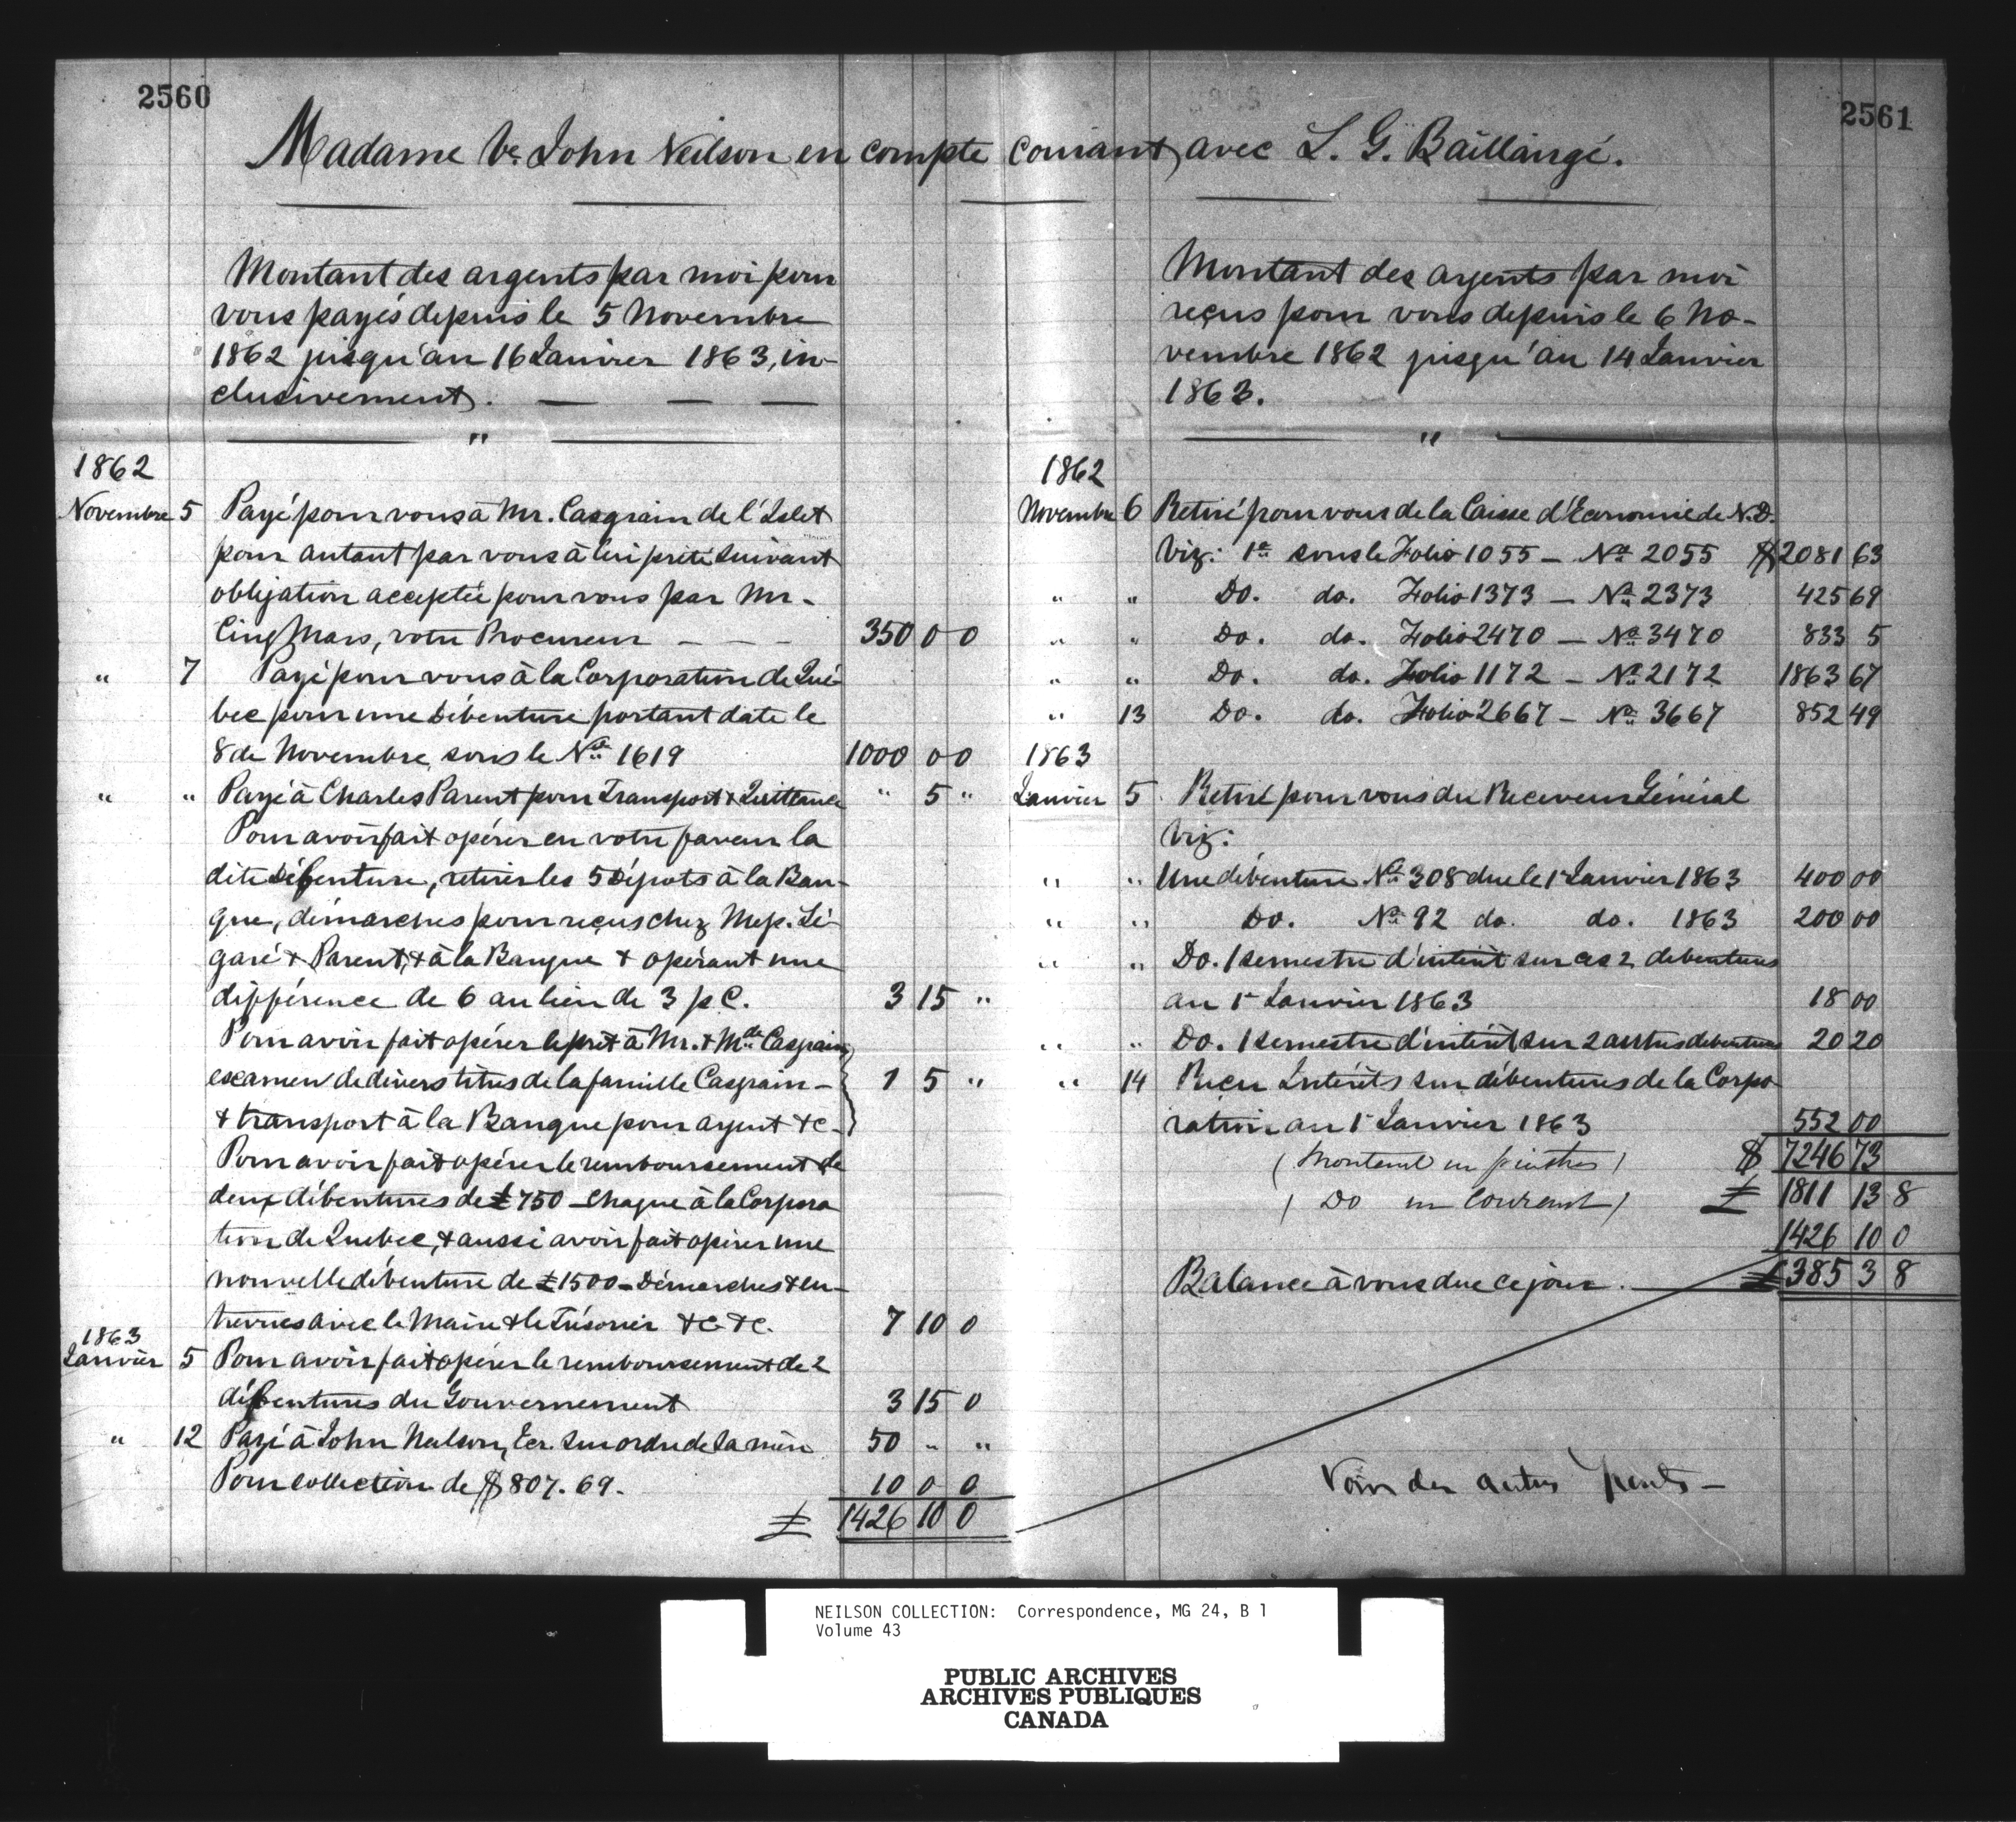 2560
2561
Madame Ve. John Neilson en compte courant avec L. G. Baillàirgé.
Montant des argents par moi pour
vous payés depuis le 5 Novembre
1862 jusqu'au 16 Janvier 1863, in-
clusivement. — — —
"
1862
Novembre 5 Payé pour vous à Mr. Casgrain de l'Islet
pour autant par vous à lui prêté suivant
obligation acceptée pour vous par Mr.
Cinq Mars, votre Procureur — — — 350 0 0
" 7 Payé pour vous à la Corporation de Qué-
bec pour une Débenture portant date le
8 de Novembre, sous le No. 1619 1000 0 0
" " Payé à Charles Parent pour Transport & Quittance " 5 "
Pour avoir fait opérer en votre faveur la
dite Débenture, retirer les 5 Dépots à la Ban-
que, démarches pour reçus chez Mess. Lé-
garé & Parent, & à la Banque & opérant une
différence de 6 au lieu de 3 p C. 3 15 "
Pour avoir fait opérer le prêt à Mr. & Mde. Casgrain
examen de divers titres de la famille Casgrain - 1 5 "
& transport à la Banque pour argent &c -
Pour avoir fait opérer le remboursement de
deux débentures de £750 - chaque à la Corpora
tion de Quebec, & aussi avoir fait opérer une
nouvelle débenture de £1500 - Démarches & en-
trevues avec le Maire & le Trésorier &c &c. 7 10 0
1863
Janvier 5 Pour avoir fait opérer le remboursement de 2
débentures du Gouvernement 3 15 0
" 12 Payé à John Neilson, Ecr. sur ordre de sa mère 50 " "
Pour collection de $807.69. 10 0 0
£ 1426 10 0
Montant des argents par moi
reçus pour vous depuis le 6 No-
vembre 1862 jusqu'au 14 Janvier
1863.
"
1862
Novembre 6 Retiré pour vous de la Caisse d'Economie de N.D.
Viz: 1o sous le Folio 1055 — No. 2055 $2081 63
" " Do. do. Folio 1373 — No. 2373 425 69
" " Do. do. Folio 2470 — No. 3470 833 5
" " Do. do. Folio 1172 — No. 2172 1863 67
" 13 Do. do. Folio 2667 — No. 3667 852 49
1863
Janvier 5 Retiré pour vous du Receveur Général
Viz:
" " Une débenture No. 308 due le 1r Janvier 1863 400 00
" " Do. No. 92 do. do. 1863 200 00
" " Do. 1 semestre d'intérêt sur ces 2 debentures
au 1r Janvier 1863 18 00
" " Do. 1 semestre d'intérêt sur 2 autres debentures 20 20
" 14 Reçu Intérêts sur débentures de la Corpo
ration au 1r Janvier 1863 552 00
(Montant en piastres) $ 7246 73
(Do en Courant) £ 1811 13 8
1426 10 0
Balance à vous due ce jour. £385 3 8
Voir des autres
NEILSON COLLECTION: Correspondence, MG 24, B 1
Volume 43
PUBLIC ARCHIVES
ARCHIVES PUBLIQUES
CANADA